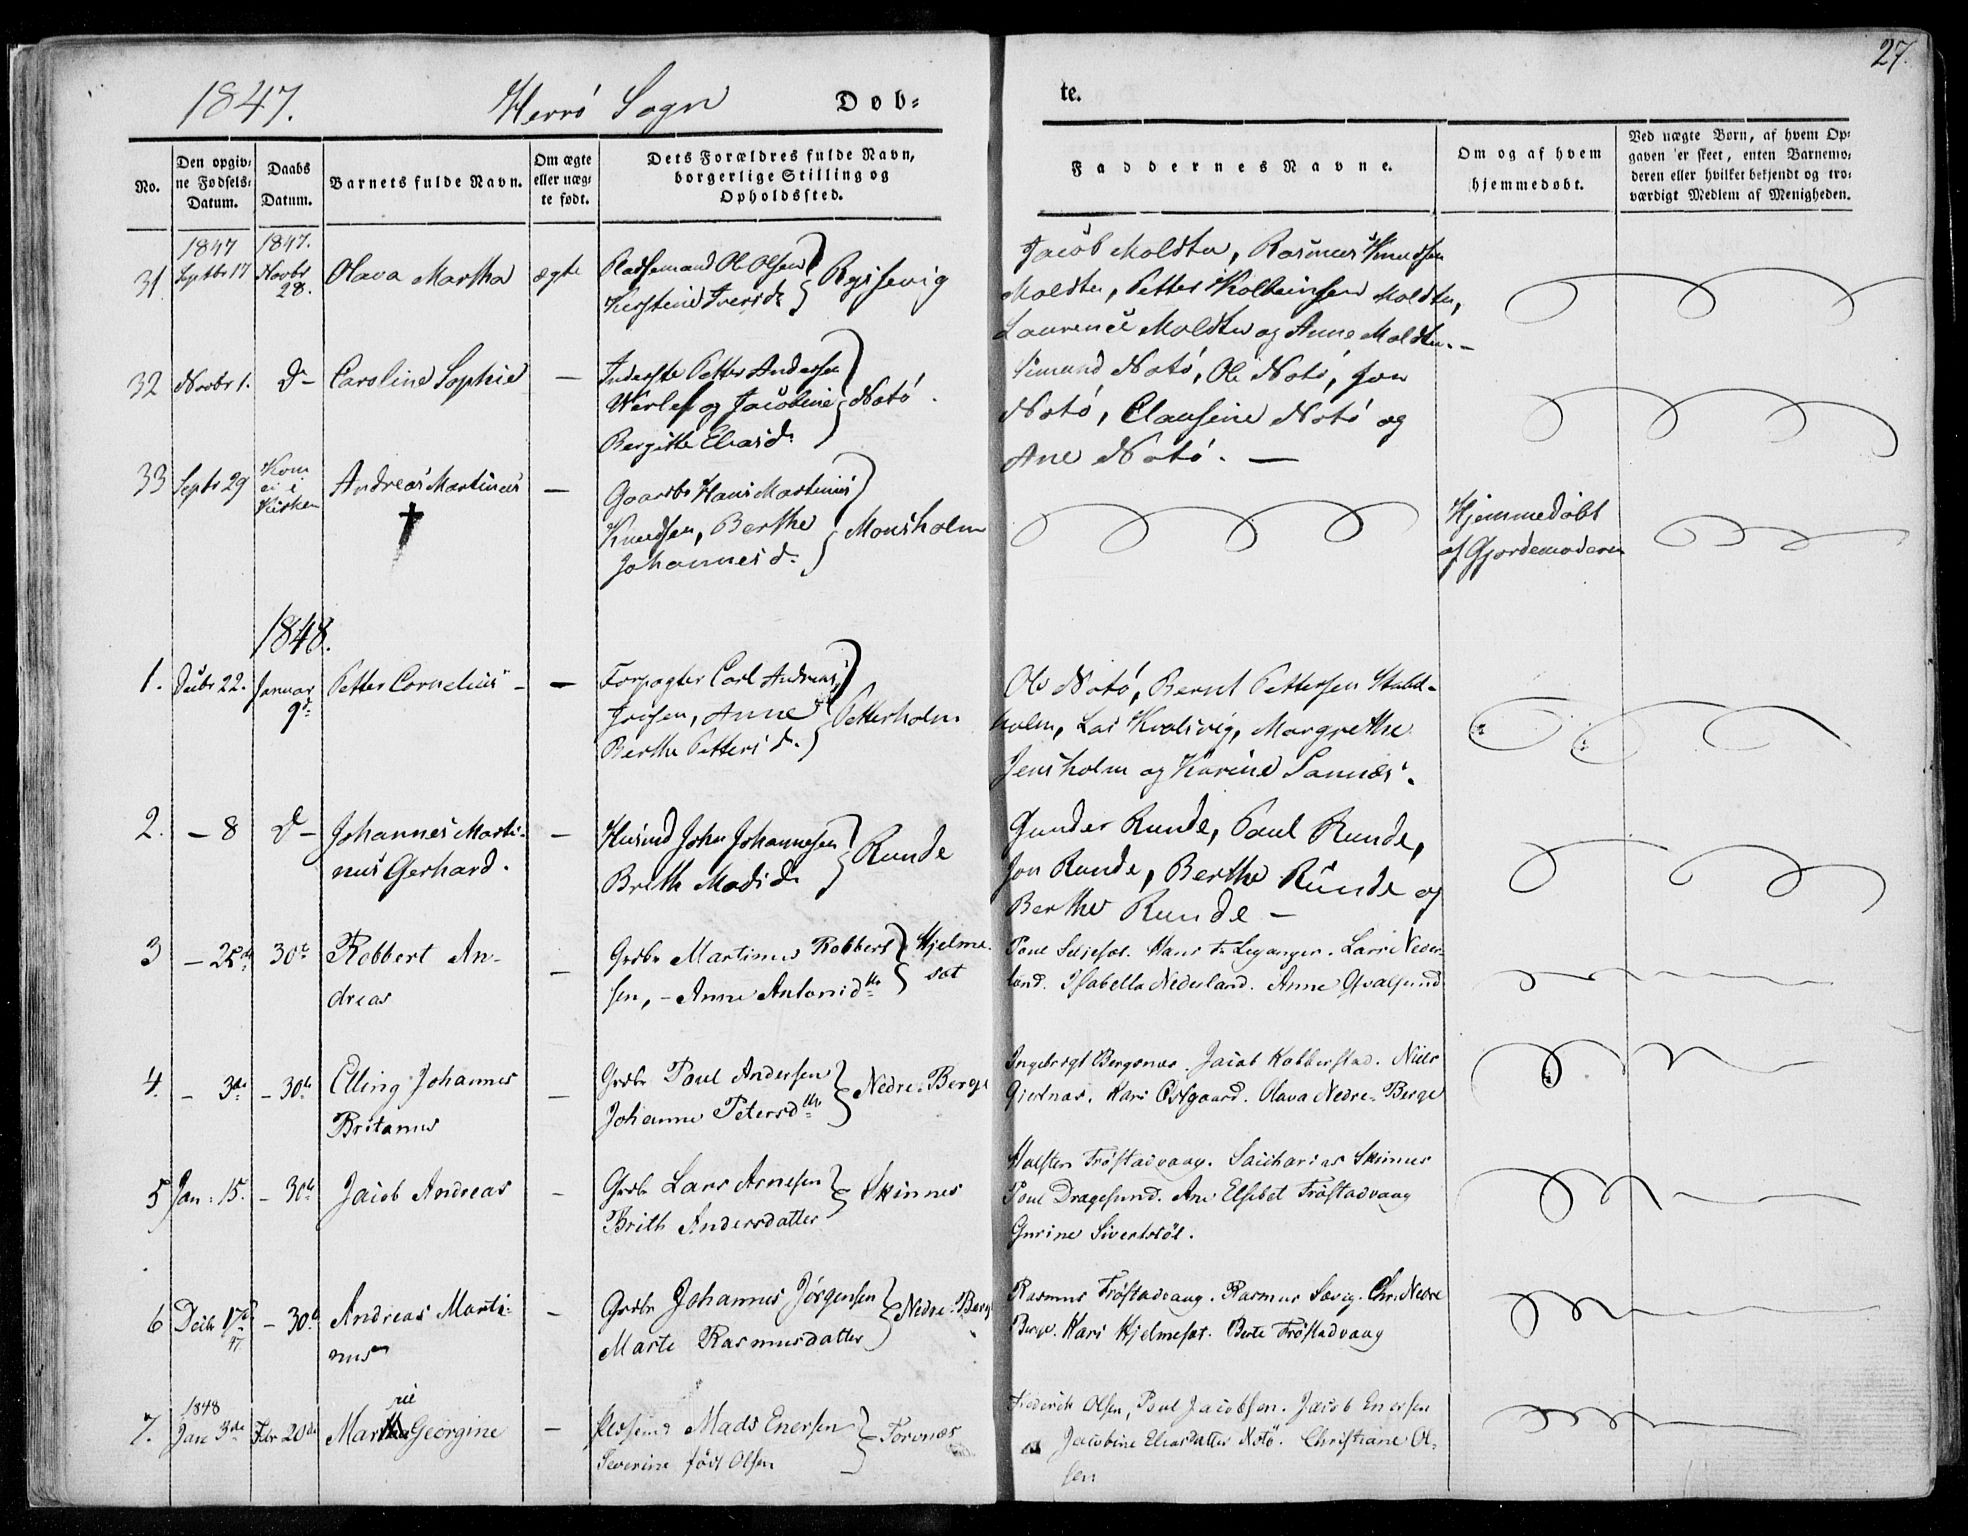 27.
1847. Herrø Sogn Døb-
te.
No.
Den opgiv-
ne Fødsels-
Datum.
Daabs
Datum.
Barnets fulde Navn.
Om ægte
eller uæg-
te født.
Dets Forældres fulde Navn,
borgerlige Stilling og
Opholdssted.
Faddernes Navne.
Om og af hvem
hjemmedøbt.
Ved uægte Børn, af hvem Op-
gaven er skeet, enten Barnemo-
deren eller hvilket bekjendt og tro-
værdigt Medlem af Menigheden.
1847 1847.
31 Septbr 17 Novbr 28. Olava Martha ægte
Pladsemand Ole Olsen
Kirstine Iversd. Ryssevig
Jacob Moldtu, Rasmus Knudsen
Moldtu, Petter Moldtu,
Laurence Moldtu og Anne Moldtu. -
32 Novbr 1. d- Caroline Sophie -
Inderste Petter Andersen
og Jacobine Notø.
Bergitte Eliasd.
Simund Notø, Ole Notø, Jon
Notø, Clausine Notø og
Ane Notø. -
33 Septbr 29 Kom
ei i
Kirken
Andreas Martinus -
Gaardbr Hans Martinus
Knudsen, Berthe Monsholm
Johannesd.
Hjemmedøbt
af Gjordemoderen
1848.
1. Decbr 22. Januar 9d. Petter Cornelius - -
Forpagter Carl Andreas
Anne Petterholm
Berthe Pettersd.
Ole Notø, Bernt Pettersen
holm, Lars Kvalsvig, Margrethe
Jensholm og Karine
2. - 8 d- Johannes Marti-
nus Gerhard. -
Husmd John Johannesen
Brith Madsd. Runde
Gunder Runde, Paul Runde,
Jon Runde, Berthe Runde og
Berthe Runde -
3 - 28de 30te Robbert An-
dreas -
Grdbr Martinus Robbert-
sen, - Anne Antonidtr Hjelme-
sæt
Poul Seljesæt. Hans Leganger. Lars Neder-
land. Isabella Nederland. Anne Qvalsund
4. - 3de - 30te Elling Johannes
Britanus -
Grdbr Poul Andersen
Johanne Petersdtr Nedre-Berge
Ingebrigt Bergsnæs. Jacob Kobberstad. Niels
Gjerdnæs. Kari Østgaard. Olava Nedre-Berge
5 Jan: 15. - 30te Jacob Andreas -
Grdbr Lars Arnesen
Brith Andersdatter Skinnes
Holsten Frøstadvaag. Sacharias Skinnes
Poul Dragesund. Ane Elsebet Frøstadvaag
Gurine Sivertstøl.
6 Decb 17de
47 - 30te Andreas Marti-
nus -
Grdbr Johannes Jørgensen
Marte Rasmusdatter Nedre-Berge
Rasmus Frøstadvaag. Rasmus Sævig. Chr. Nedre
Berge. Kari Hjelmesæt. Berte Frøstadvaag
1848
7. Jan 3de Febr 20de Martha rie Georgine -
Mads Enersen
Severine født Olsen Torvnæs
Frederich Olsen, Poul Jacobsen. Jacob Enersen
Jacobine Eliasdatter Notö. Christiane Ol-
sen